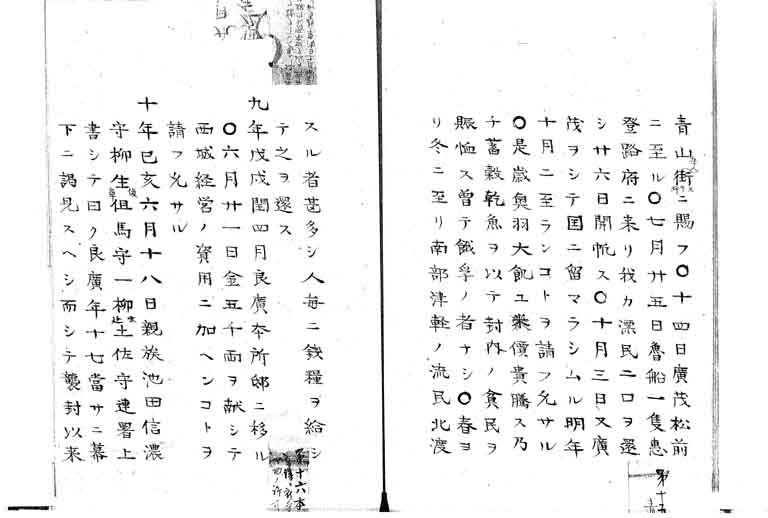 青山街ニ賜フ〇十四日廣茂松前
ニ至ル〇七月廿五日魯船一隻惠
登路府ニ来リ我カ漂民二口ヲ還
シ廿六日開帆ス〇十月三日又廣
茂ヲシテ国ニ留マラシムル明年
十月ニ至ランコトヲ請フ允サル
〇是歳奥羽大飢ユ米價貴騰ス乃
チ蓄穀乾魚ヲ以テ封内ノ貧民ヲ
賑恤ス曽テ餓孚ノ者ナシ〇春ヨ
リ冬ニ至リ南部津軽ノ流民北渡
第十五
スル者甚多シ人毎ニ銭糧ヲ給シ
テ之ヲ還ス
九年戊戌閏四月良廣本所邸ニ移ル
〇六月廿一日金五千両ヲ献シテ
西城経営ノ資用ニ加ヘンコトヲ
請フ允サル
十年己亥六月十八日親族池田信濃
守柳生但馬守一柳土佐守連署上
書シテ曰ク良廣年十七當サニ幕
下ニ謁見スヘシ而シテ襲封以来
第十六